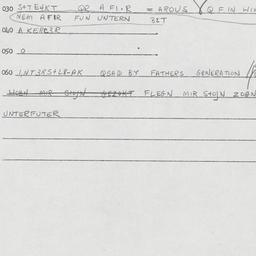 030 S+TE4KT QR A FI·R = AROUS Q F IN WIN
(NEM AFIR FUN UNTERN BET
040 A KEPL3R
050 O
060 INT3RS+LB-AK QSAD BY FATHERS GENERATION
WOEN MIR G+OJN GEZ4KT FLEGN MIR S+OJN ZOGN
UNTERFUTER